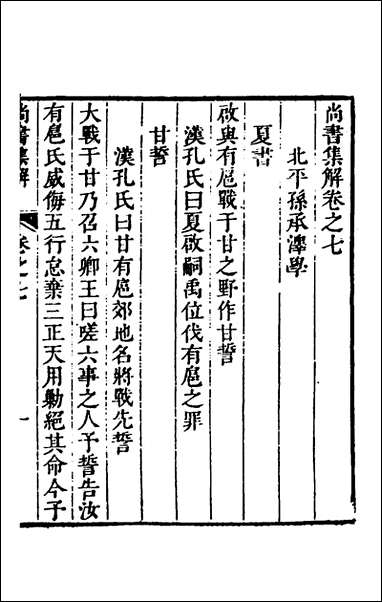 尚書集解卷之七
北平孫承澤學
夏書
啟與有扈戰于甘之野作甘誓
漢孔氏曰夏啟嗣禹位伐有扈之罪
甘誓
漢孔氏曰甘有扈郊地名將戰先誓
大戰于甘乃召六卿王曰嗟六事之人予誓告汝
有扈氏威侮五行怠棄三正天用勦絕其命今予
尚書集解 卷之七 一